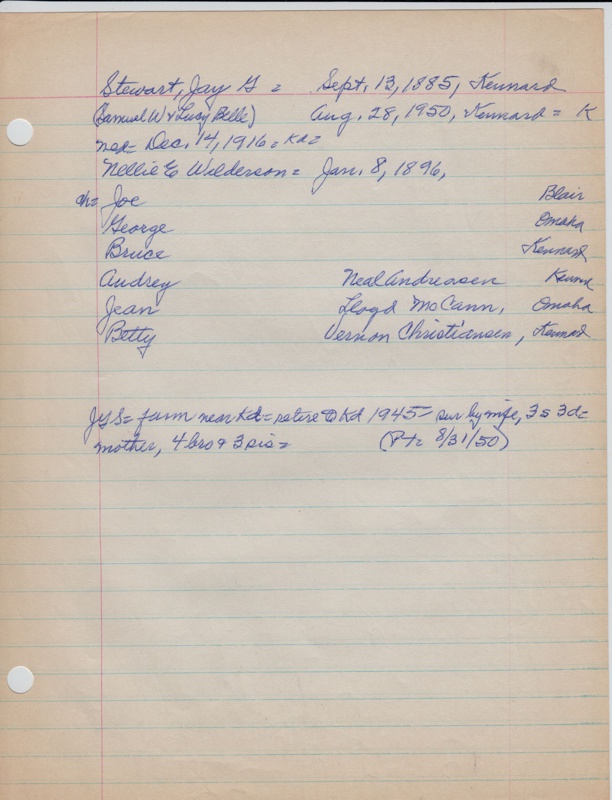 Stewart, Jay G = Sept. 13, 1885, Kennard
(Samuel W & Lucy Belle) Aug. 28, 1950, Kennard = K
med = Dec. 14, 1916 = Kd =
Nellie E Wilderson = Jan. 8, 1896,
ch = Joe Blair
George Omaha
Bruce Kennard
Audrey Neal Andreasen Kenna
Jean Lloyd McCann, Omaha
Betty Vernon Christiansen, Kennard
JGS = farm near Kd = retire to Kd 1945 = sur by wife, 3 s 3 d =
mother, 4 bro & 3 sis = (PT = 8/31/50)